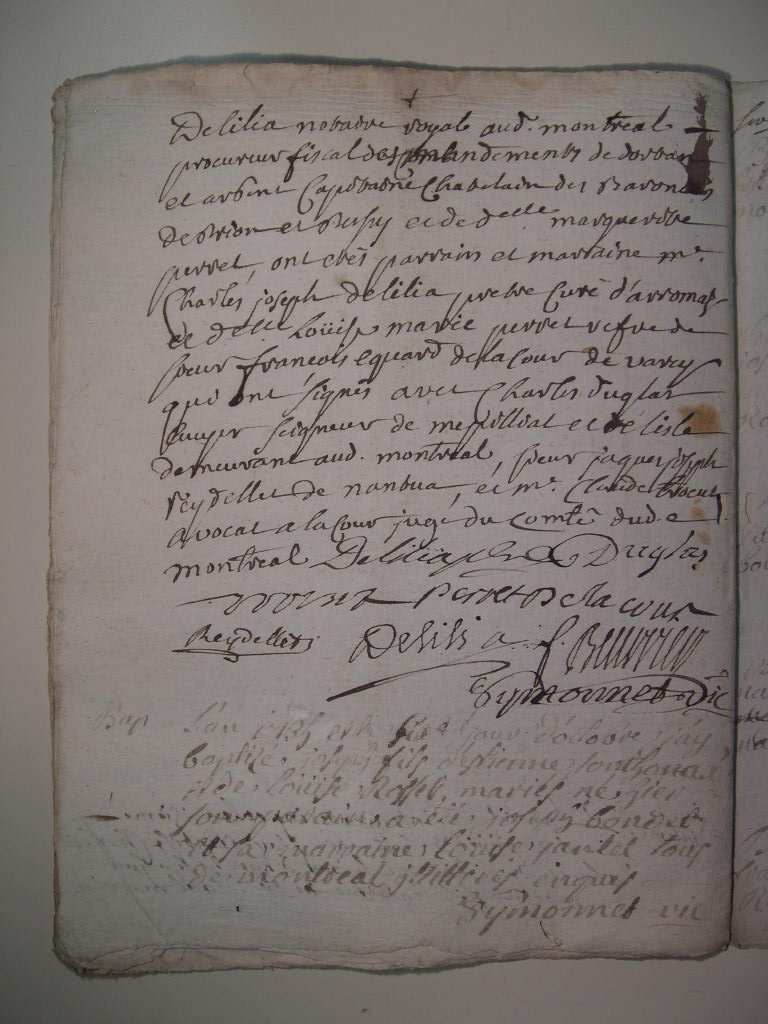 Delilia notaire royale aud. montreal
procureur fiscal des mandements de dortan
et arbent Capitaine Chatelain des Baronies
de et et de delle marguerite
perret, ont etés parrain et marraine mr.
Charles joseph Delilia pretre Curé d'arromas
et delle Loüise marie perret vefve de
sieur françois Equard de la Cour de varey
qui ont signés avec Charles Duglas
Ecuyer Seigneur de mepilliat et de lisle
demeurant aud. montreal, sieur jaques joseph
reydellet de nantua, et mr. Claude
avocat a la Cour juge du Comté dude
montreal Delilia Duglas
Perret De la cour
Reydellet Delilia f.
Symonnet Vic
Bap L'an et le jour d'octobre j'ay
baptisé joseph fils d'estienne
et de Loüise mariés né hier
son parain a eté joseph bondet
et sa marraine Loüise tous
de montreal jllitires enquis
Symonnet vic